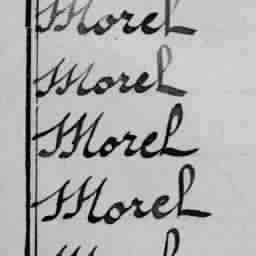 Morel
Morel
Morel
Morel